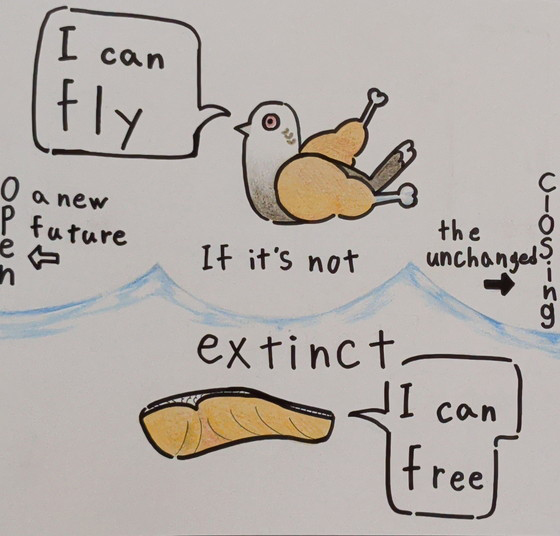 I can
fly
Open
a new
future
If it's not
the
unchanged
closing
extinct
I can
free